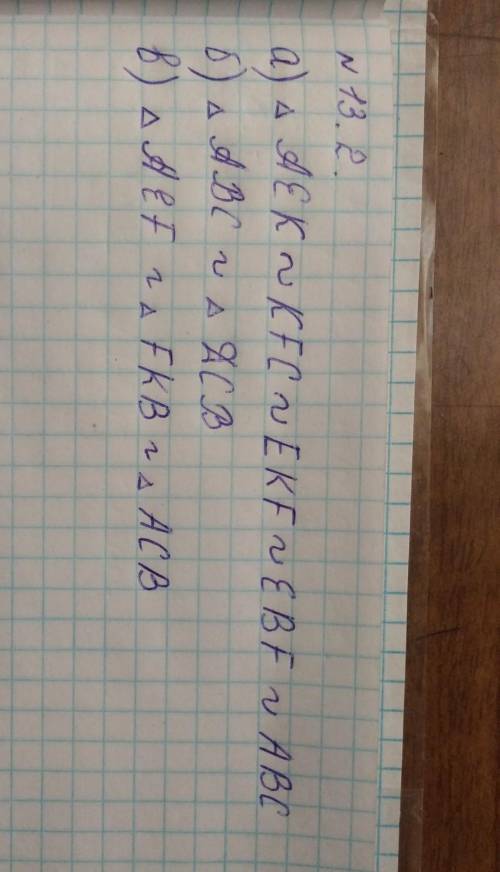 № 13.2.
а) △ AEK ~ KFC ~ EKF ~ EBF ~ ABC
б) △ ABC ~ △ DCB
в) △ AEF ~ △ FKB ~ △ ACB